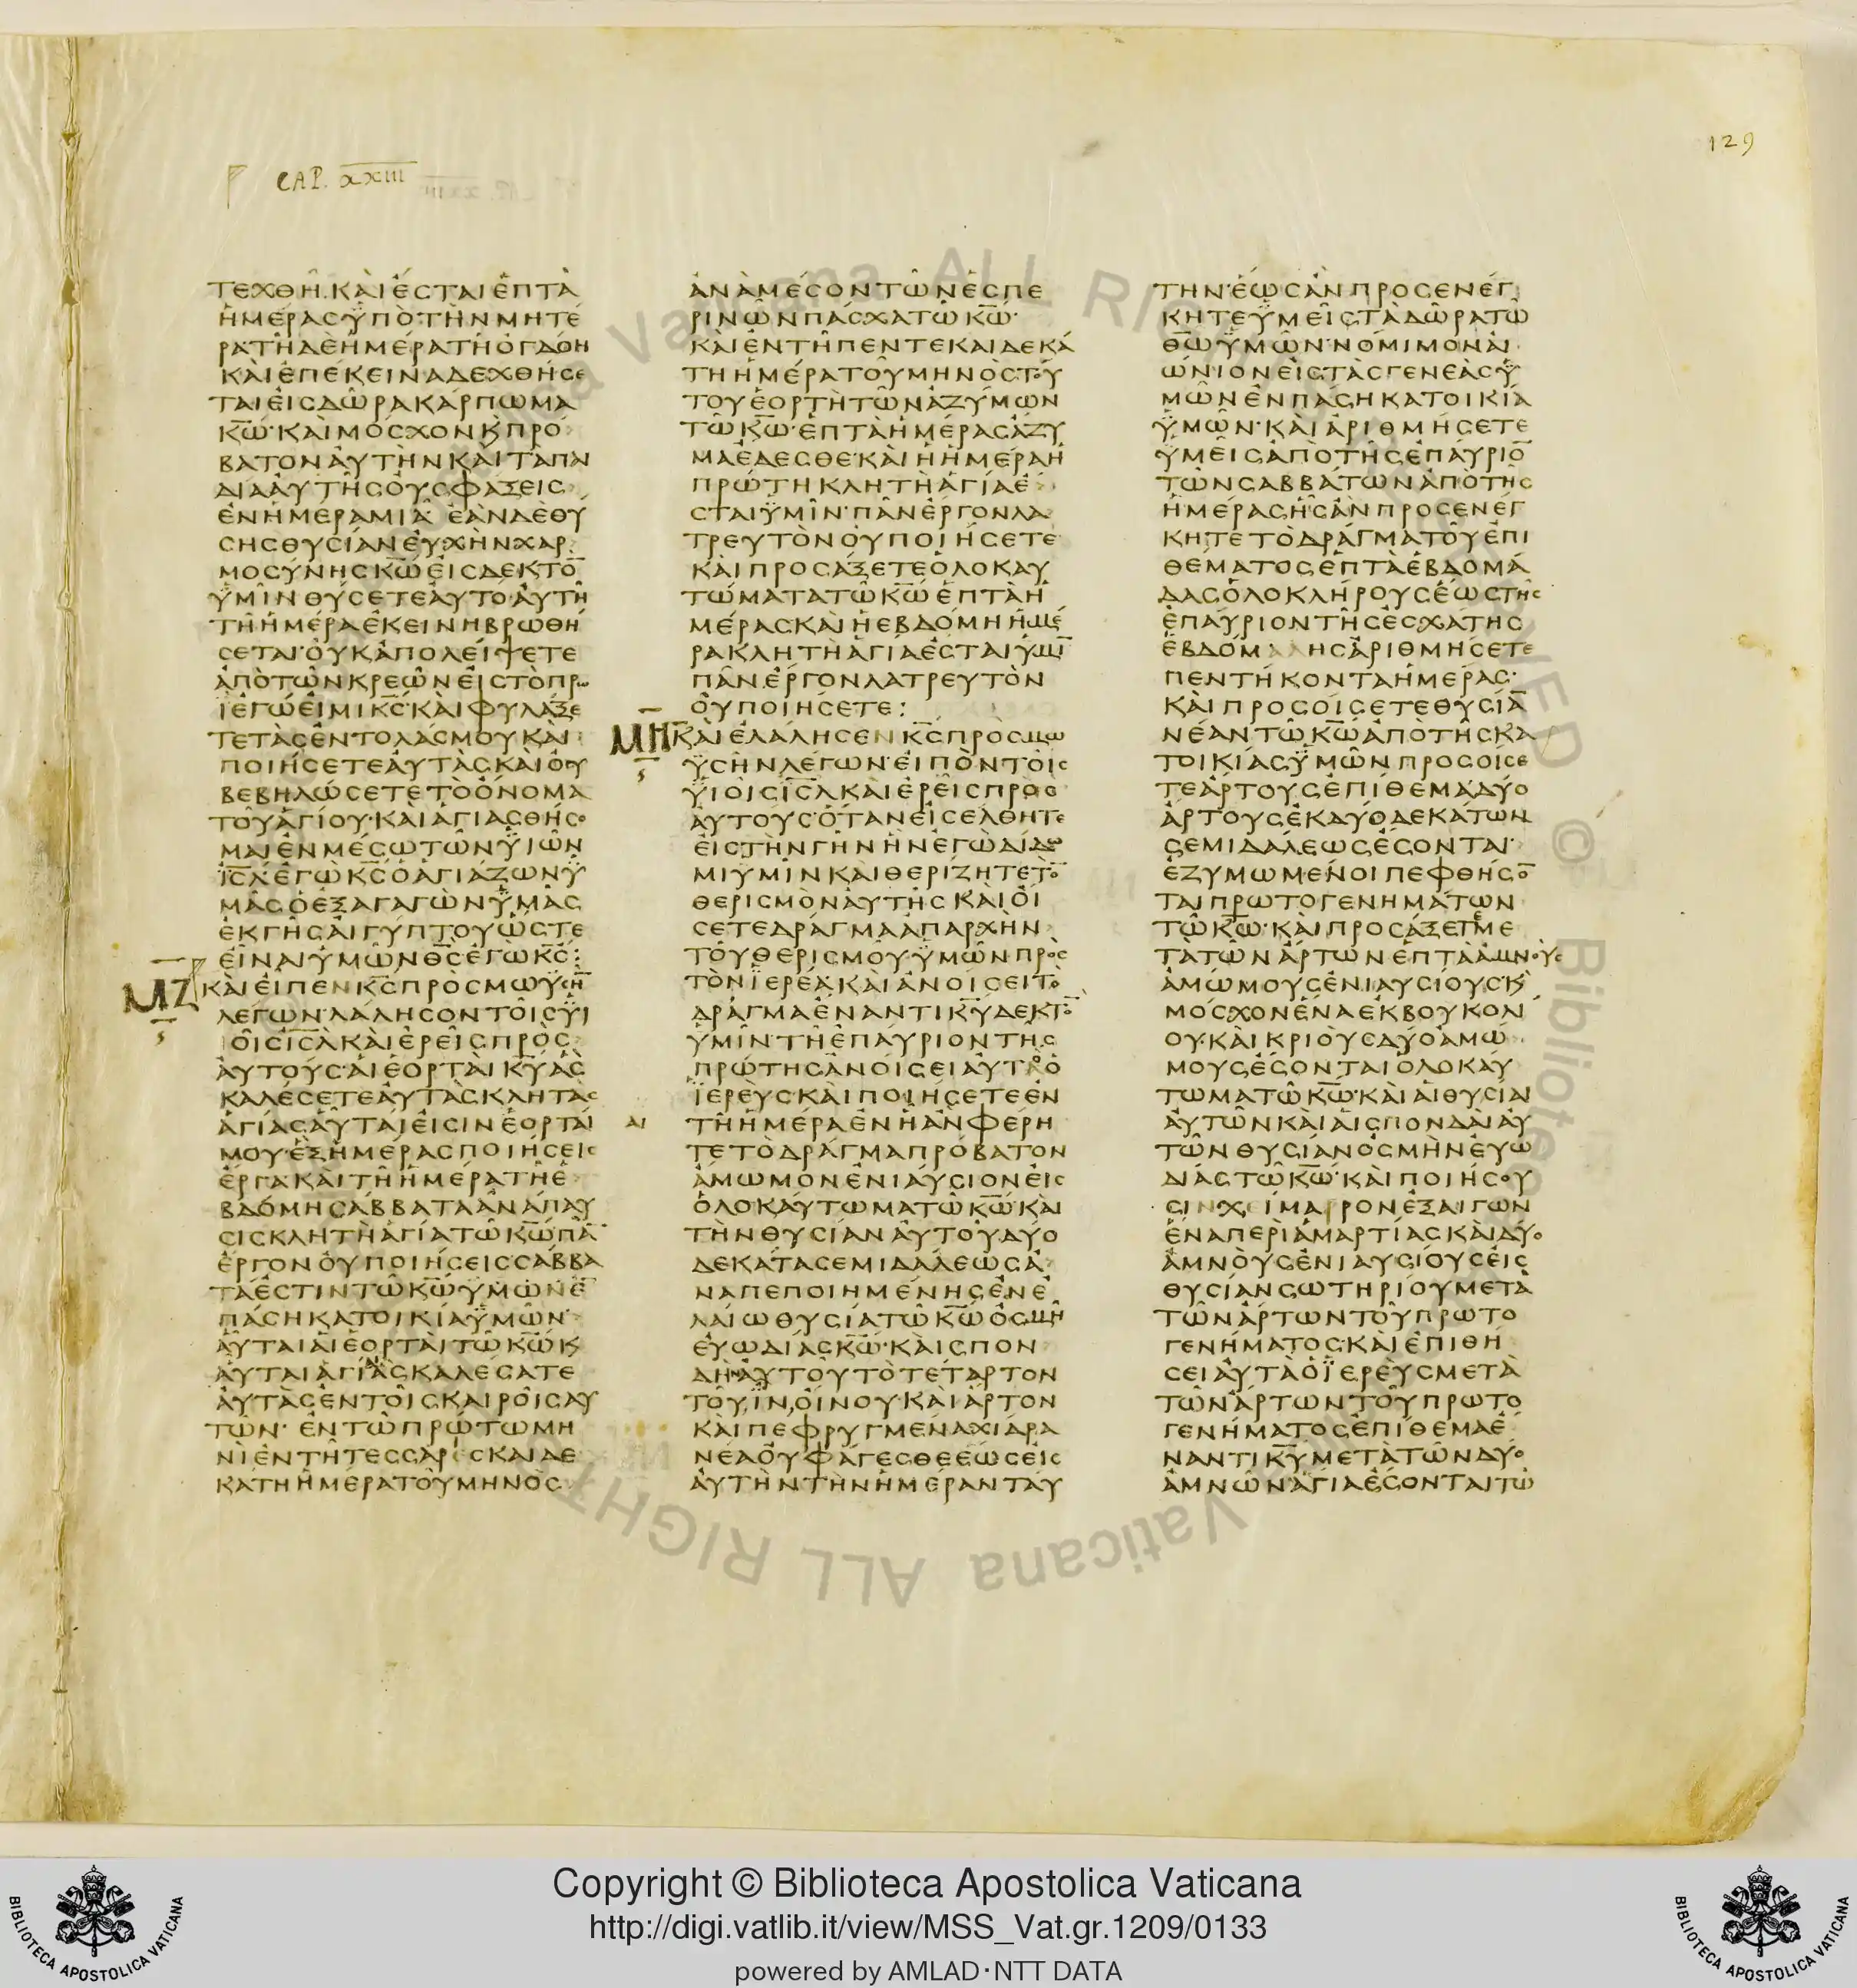 129
CAP. XXIII
ΤΕΧΘΗ ΚΑΙ ΕϹΤΑΙ ΕΠΤΑ
ΗΜΕΡΑϹ ΥΠΟ ΤΗΝ ΜΗΤΕ
ΡΑ ΤΗ ΔΕ ΗΜΕΡΑ ΤΗ ΟΓΔΟΗ
ΚΑΙ ΕΠΕΚΕΙΝΑ ΔΕΧΘΗϹΕ
ΤΑΙ ΕΙϹ ΔΩΡΑ ΚΑΡΠΩΜΑ
Κ̅Ω̅· ΚΑΙ ΜΟϹΧΟΝ Ϗ ΠΡΟ
ΒΑΤΟΝ ΑΥΤΗΝ ΚΑΙ ΤΑ ΠΑΙ
ΔΙΑ ΑΥΤΗϹ ΟΥ ϹΦΑΞΕΙϹ
ΕΝ ΗΜΕΡΑ ΜΙΑ· ΕΑΝ ΔΕ ΘΥ
ϹΗϹ ΘΥϹΙΑΝ ΕΥΧΗΝ ΧΑΡ
ΜΟϹΥΝΗϹ Κ̅Ω̅ ΕΙϹ ΔΕΚΤΟ̅
ΥΜΙΝ ΘΥϹΕΤΕ ΑΥΤΟ· ΑΥΤΗ
ΤΗ ΗΜΕΡΑ ΕΚΕΙΝΗ ΒΡΩΘΗ
ϹΕΤΑΙ· ΟΥΚ ΑΠΟΛΕΙΨΕΤΕ
ΑΠΟ ΤΩΝ ΚΡΕΩΝ ΕΙϹ ΤΟ ΠΡΩ
Ι ΕΓΩ ΕΙΜΙ Κ̅Ϲ̅· ΚΑΙ ΦΥΛΑΞΕ
ΤΕ ΤΑϹ ΕΝΤΟΛΑϹ ΜΟΥ ΚΑΙ
ΠΟΙΗϹΕΤΕ ΑΥΤΑϹ ΚΑΙ ΟΥ
ΒΕΒΗΛΩϹΕΤΕ ΤΟ ΟΝΟΜΑ
ΤΟΥ ΑΓΙΟΥ· ΚΑΙ ΑΓΙΑϹΘΗϹΟ
ΜΑΙ ΕΝ ΜΕϹΩ ΤΩΝ ΥΙΩΝ
Ι̅Ϲ̅Λ̅ ΕΓΩ Κ̅Ϲ̅ Ο ΑΓΙΑΖΩΝ Υ
ΜΑϹ Ο ΕΞΑΓΑΓΩΝ ΥΜΑϹ
ΕΚ ΓΗϹ ΑΙΓΥΠΤΟΥ ΩϹΤΕ
ΕΙΝΑΙ ΥΜΩΝ Θ̅Ϲ̅ ΕΓΩ Κ̅Ϲ̅:
ΜΖ ΚΑΙ ΕΙΠΕΝ Κ̅Ϲ̅ ΠΡΟϹ ΜΩΥϹΗ̅
ΛΕΓΩΝ· ΛΑΛΗϹΟΝ ΤΟΙϹ ΥΙ
ΟΙϹ Ι̅Ϲ̅Λ̅ ΚΑΙ ΕΡΕΙϹ ΠΡΟϹ
ΑΥΤΟΥϹ· ΑΙ ΕΟΡΤΑΙ Κ̅Υ̅ ΑϹ
ΚΑΛΕϹΕΤΕ ΑΥΤΑϹ ΚΛΗΤΑϹ
ΑΓΙΑϹ ΑΥΤΑΙ ΕΙϹΙΝ ΕΟΡΤΑΙ ΑΙ
ΜΟΥ· ΕΞ ΗΜΕΡΑϹ ΠΟΙΗϹΕΙϹ
ΕΡΓΑ ΚΑΙ ΤΗ ΗΜΕΡΑ ΤΗ Ε
ΒΔΟΜΗ ϹΑΒΒΑΤΑ ΑΝΑΠΑΥ
ϹΙϹ ΚΛΗΤΗ ΑΓΙΑ ΤΩ Κ̅Ω̅ ΠΑ̅
ΕΡΓΟΝ ΟΥ ΠΟΙΗϹΕΙϹ ϹΑΒΒΑ
ΤΑ ΕϹΤΙΝ ΤΩ Κ̅Ω̅ ΥΜΩΝ Ε̅
ΠΑϹΗ ΚΑΤΟΙΚΙΑ ΥΜΩΝ·
ΑΥΤΑΙ ΑΙ ΕΟΡΤΑΙ ΤΩ Κ̅Ω̅ Ϗ
ΑΥΤΑΙ ΑΓΙΑϹ ΚΑΛΕϹΑΤΕ
ΑΥΤΑϹ ΕΝ ΤΟΙϹ ΚΑΙΡΟΙϹ ΑΥ
ΤΩΝ· ΕΝ ΤΩ ΠΡΩΤΩ ΜΗ
ΝΙ ΕΝ ΤΗ ΤΕϹϹΑΡΕϹΚΑΙΔΕ
ΚΑΤΗ ΗΜΕΡΑ ΤΟΥ ΜΗΝΟϹ
ΑΝΑ ΜΕϹΟΝ ΤΩΝ ΕϹΠΕ
ΡΙΝΩΝ ΠΑϹΧΑ ΤΩ Κ̅Ω̅·
ΚΑΙ ΕΝ ΤΗ ΠΕΝΤΕΚΑΙΔΕΚΑ
ΤΗ ΗΜΕΡΑ ΤΟΥ ΜΗΝΟϹ ΤΟΥ
ΤΟΥ ΕΟΡΤΗ ΤΩΝ ΑΖΥΜΩΝ
ΤΩ Κ̅Ω̅· ΕΠΤΑ ΗΜΕΡΑϹ ΑΖΥ
ΜΑ ΕΔΕϹΘΕ· ΚΑΙ Η ΗΜΕΡΑ Η
ΠΡΩΤΗ ΚΛΗΤΗ ΑΓΙΑ Ε
ϹΤΑΙ ΥΜΙΝ· ΠΑΝ ΕΡΓΟΝ ΛΑ
ΤΡΕΥΤΟΝ ΟΥ ΠΟΙΗϹΕΤΕ
ΚΑΙ ΠΡΟϹΑΞΕΤΕ ΟΛΟΚΑΥ
ΤΩΜΑΤΑ ΤΩ Κ̅Ω̅ ΕΠΤΑ Η
ΜΕΡΑϹ ΚΑΙ Η ΕΒΔΟΜΗ ΗΜΕ
ΡΑ ΚΛΗΤΗ ΑΓΙΑ ΕϹΤΑΙ ΥΜΙ̅
ΠΑΝ ΕΡΓΟΝ ΛΑΤΡΕΥΤΟΝ
ΟΥ ΠΟΙΗϹΕΤΕ:
ΜΗ ΚΑΙ ΕΛΑΛΗϹΕΝ Κ̅Ϲ̅ ΠΡΟϹ ΜΩ
ΥϹΗΝ ΛΕΓΩΝ· ΕΙΠΟΝ ΤΟΙϹ
ΥΙΟΙϹ Ι̅Ϲ̅Λ̅ ΚΑΙ ΕΡΕΙϹ ΠΡΟϹ
ΑΥΤΟΥϹ· ΟΤΑΝ ΕΙϹΕΛΘΗΤΕ
ΕΙϹ ΤΗΝ ΓΗΝ ΗΝ ΕΓΩ ΔΙΔΩ
ΜΙ ΥΜΙΝ ΚΑΙ ΘΕΡΙΖΗΤΕ ΤΟ̅
ΘΕΡΙϹΜΟΝ ΑΥΤΗϹ ΚΑΙ ΟΙ
ϹΕΤΕ ΔΡΑΓΜΑ ΑΠΑΡΧΗΝ
ΤΟΥ ΘΕΡΙϹΜΟΥ ΥΜΩΝ ΠΡΟϹ
ΤΟΝ ΙΕΡΕΑ· ΚΑΙ ΑΝΟΙϹΕΙ ΤΟ
ΔΡΑΓΜΑ ΕΝΑΝΤΙ Κ̅Υ̅ ΔΕΚΤΟ̅
ΥΜΙΝ· ΤΗ ΕΠΑΥΡΙΟΝ ΤΗϹ
ΠΡΩΤΗϹ ΑΝΟΙϹΕΙ ΑΥΤΟ Ο
ΙΕΡΕΥϹ· ΚΑΙ ΠΟΙΗϹΕΤΕ ΕΝ
ΤΗ ΗΜΕΡΑ ΕΝ Η ΑΝ ΦΕΡΗ
ΤΕ ΤΟ ΔΡΑΓΜΑ ΠΡΟΒΑΤΟΝ
ΑΜΩΜΟΝ ΕΝΙΑΥϹΙΟΝ ΕΙϹ
ΟΛΟΚΑΥΤΩΜΑ ΤΩ Κ̅Ω̅· ΚΑΙ
ΤΗΝ ΘΥϹΙΑΝ ΑΥΤΟΥ ΔΥΟ
ΔΕΚΑΤΑ ϹΕΜΙΔΑΛΕΩϹ Α
ΝΑΠΕΠΟΙΗΜΕΝΗϹ ΕΝ Ε
ΛΑΙΩ ΘΥϹΙΑ ΤΩ Κ̅Ω̅ ΟϹΜΗ
ΕΥΩΔΙΑϹ Κ̅Ω̅· ΚΑΙ ϹΠΟΝ
ΔΗ ΑΥΤΟΥ ΤΟ ΤΕΤΑΡΤΟΝ
ΤΟΥ ΙΝ ΟΙΝΟΥ· ΚΑΙ ΑΡΤΟΝ
ΚΑΙ ΠΕΦΡΥΓΜΕΝΑ ΧΙΔΡΑ
ΝΕΑ ΟΥ ΦΑΓΕϹΘΕ ΕΩϹ ΕΙϹ
ΑΥΤΗΝ ΤΗΝ ΗΜΕΡΑΝ ΤΑΥ
ΤΗΝ· ΕΩϹ ΑΝ ΠΡΟϹΕΝΕΓ
ΚΗΤΕ ΥΜΕΙϹ ΤΑ ΔΩΡΑ ΤΩ
ΘΩ ΥΜΩΝ· ΝΟΜΙΜΟΝ ΑΙ
ΩΝΙΟΝ ΕΙϹ ΤΑϹ ΓΕΝΕΑϹ Υ
ΜΩΝ ΕΝ ΠΑϹΗ ΚΑΤΟΙΚΙΑ
ΥΜΩΝ· ΚΑΙ ΑΡΙΘΜΗϹΕΤΕ
ΥΜΕΙϹ ΑΠΟ ΤΗϹ ΕΠΑΥΡΙΟ̅
ΤΩΝ ϹΑΒΒΑΤΩΝ ΑΠΟ ΤΗϹ
ΗΜΕΡΑϹ ΗϹ ΑΝ ΠΡΟϹΕΝΕΓ
ΚΗΤΕ ΤΟ ΔΡΑΓΜΑ ΤΟΥ ΕΠΙ
ΘΕΜΑΤΟϹ ΕΠΤΑ ΕΒΔΟΜΑ
ΔΑϹ ΟΛΟΚΛΗΡΟΥϹ ΕΩϹ ΤΗϹ
ΕΠΑΥΡΙΟΝ ΤΗϹ ΕϹΧΑΤΗϹ
ΕΒΔΟΜΑΔΗϹ ΑΡΙΘΜΗϹΕΤΕ
ΠΕΝΤΗΚΟΝΤΑ ΗΜΕΡΑϹ·
ΚΑΙ ΠΡΟϹΟΙϹΕΤΕ ΘΥϹΙΑ̅
ΝΕΑΝ ΤΩ Κ̅Ω̅ ΑΠΟ ΤΗϹ ΚΑ
ΤΟΙΚΙΑϹ ΥΜΩΝ ΠΡΟϹΟΙϹΕ
ΤΕ ΑΡΤΟΥϹ ΕΠΙΘΕΜΑ ΔΥΟ
ΑΡΤΟΥϹ ΕΚ ΔΥΟ ΔΕΚΑΤΩΝ
ϹΕΜΙΔΑΛΕΩϹ ΕϹΟΝΤΑΙ·
ΕΖΥΜΩΜΕΝΟΙ ΠΕΦΘΗϹΟ̅
ΤΑΙ ΠΡΩΤΟΓΕΝΗΜΑΤΩΝ
ΤΩ Κ̅Ω̅· ΚΑΙ ΠΡΟϹΑΞΕΤΕ ΜΕ
ΤΑ ΤΩΝ ΑΡΤΩΝ ΕΠΤΑ ΑΜΝΟΥϹ
ΑΜΩΜΟΥϹ ΕΝΙΑΥϹΙΟΥϹ Ϗ
ΜΟϹΧΟΝ ΕΝΑ ΕΚ ΒΟΥΚΟΛΙ
ΟΥ· ΚΑΙ ΚΡΙΟΥϹ ΔΥΟ ΑΜΩ
ΜΟΥϹ ΕϹΟΝΤΑΙ ΟΛΟΚΑΥ
ΤΩΜΑ ΤΩ Κ̅Ω̅· ΚΑΙ ΑΙ ΘΥϹΙΑΙ
ΑΥΤΩΝ ΚΑΙ ΑΙ ϹΠΟΝΔΑΙ ΑΥ
ΤΩΝ ΘΥϹΙΑΝ ΟϹΜΗΝ ΕΥΩ
ΔΙΑϹ ΤΩ Κ̅Ω̅· ΚΑΙ ΠΟΙΗϹΟΥ
ϹΙΝ ΧΕΙΜΑΡΡΟΝ ΕΞ ΑΙΓΩΝ
ΕΝΑ ΠΕΡΙ ΑΜΑΡΤΙΑϹ ΚΑΙ ΔΥΟ
ΑΜΝΟΥϹ ΕΝΙΑΥϹΙΟΥϹ ΕΙϹ
ΘΥϹΙΑΝ ϹΩΤΗΡΙΟΥ ΜΕΤΑ
ΤΩΝ ΑΡΤΩΝ ΤΟΥ ΠΡΩΤΟ
ΓΕΝΗΜΑΤΟϹ· ΚΑΙ ΕΠΙΘΗ
ϹΕΙ ΑΥΤΑ Ο ΙΕΡΕΥϹ ΜΕΤΑ
ΤΩΝ ΑΡΤΩΝ ΤΟΥ ΠΡΩΤΟ
ΓΕΝΗΜΑΤΟϹ ΕΠΙΘΕΜΑ Ε
ΝΑΝΤΙ Κ̅Υ̅ ΜΕΤΑ ΤΩΝ ΔΥΟ
ΑΜΝΩΝ ΑΓΙΑ ΕϹΟΝΤΑΙ ΤΩ
Copyright © Biblioteca Apostolica Vaticana
http://digi.vatlib.it/view/MSS_Vat.gr.1209/0133
powered by AMLAD·NTT DATA
BIBLIOTECA APOSTOLICA VATICANA
BIBLIOTECA APOSTOLICA VATICANA